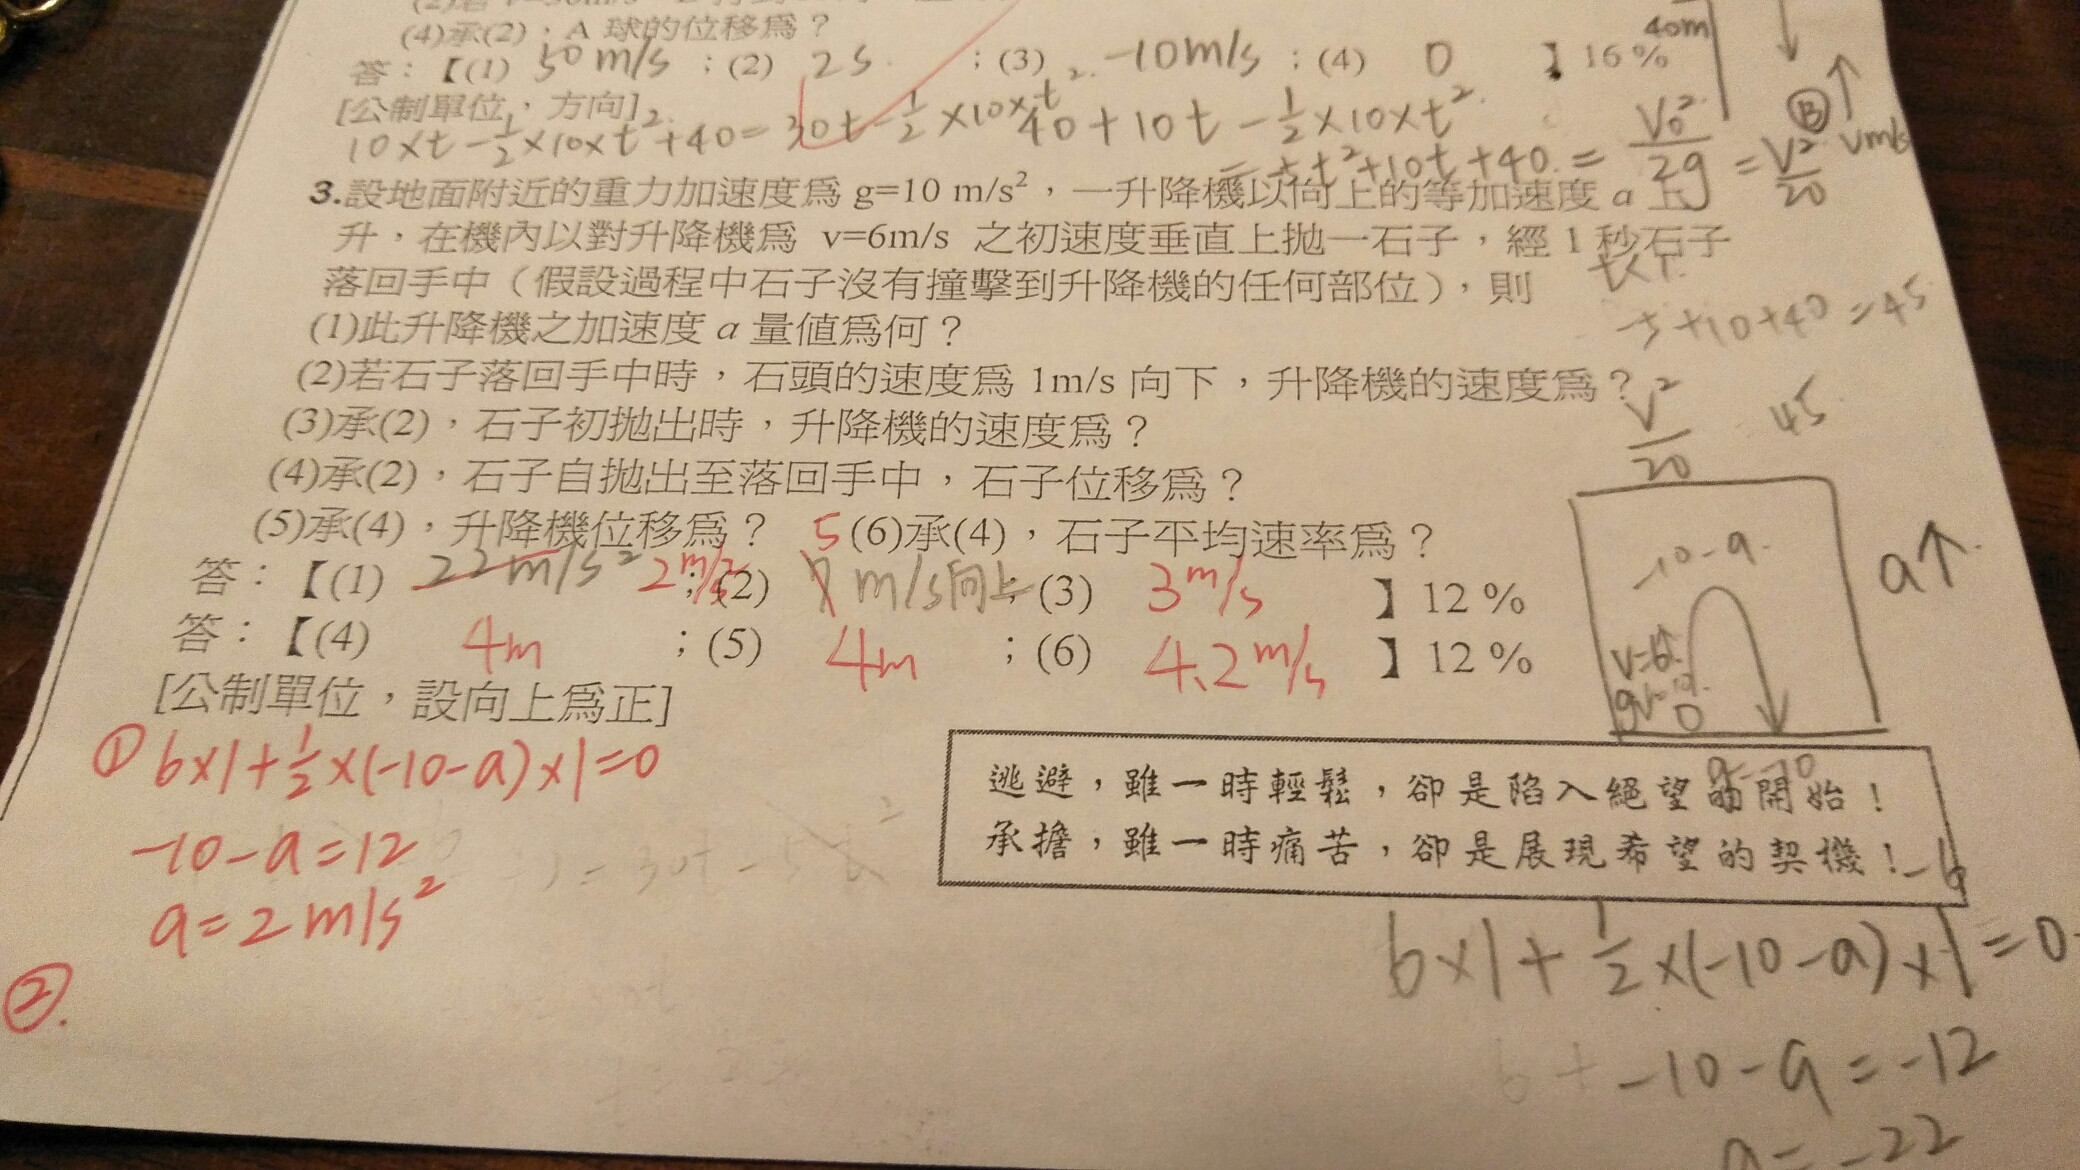 (4)承(2)，A 球的位移爲？
40m
答：【(1) 30 m/s ；(2) 2s ；(3) -10m/s ；(4) 0 】16%
[公制單位，方向]
10×t-½×10×t²+40=30t-½×10×t² 40+10t-½×10×t²
t²+10t+40 = V₀²/2g = V²/20
Ⓑ
vm/s
3.設地面附近的重力加速度爲 g=10 m/s²，一升降機以向上的等加速度 a 上
升，在機內以對升降機爲 v=6m/s 之初速度垂直上拋一石子，經 1 秒石子
落回手中（假設過程中石子沒有撞擊到升降機的任何部位），則
-5+10+40=45
(1)此升降機之加速度 a 量值爲何？
(2)若石子落回手中時，石頭的速度爲 1m/s 向下，升降機的速度爲？
V²/20 45
(3)承(2)，石子初拋出時，升降機的速度爲？
(4)承(2)，石子自拋出至落回手中，石子位移爲？
(5)承(4)，升降機位移爲？ 5 (6)承(4)，石子平均速率爲？
-10-a
a↑
答：【(1) 22m/s² 2m/s² ；(2) m/s向上；(3) 3m/s 】12%
答：【(4) 4m ；(5) 4m ；(6) 4.2m/s 】12%
v=6
0
[公制單位，設向上爲正]
① 6×1+½×(-10-a)×1=0
-10-a=12
a=2m/s²
②.
逃避，雖一時輕鬆，卻是陷入絕望的開始！
承擔，雖一時痛苦，卻是展現希望的契機！
6×1+½×(-10-a)×1=0
-10-a=-12
a=-22